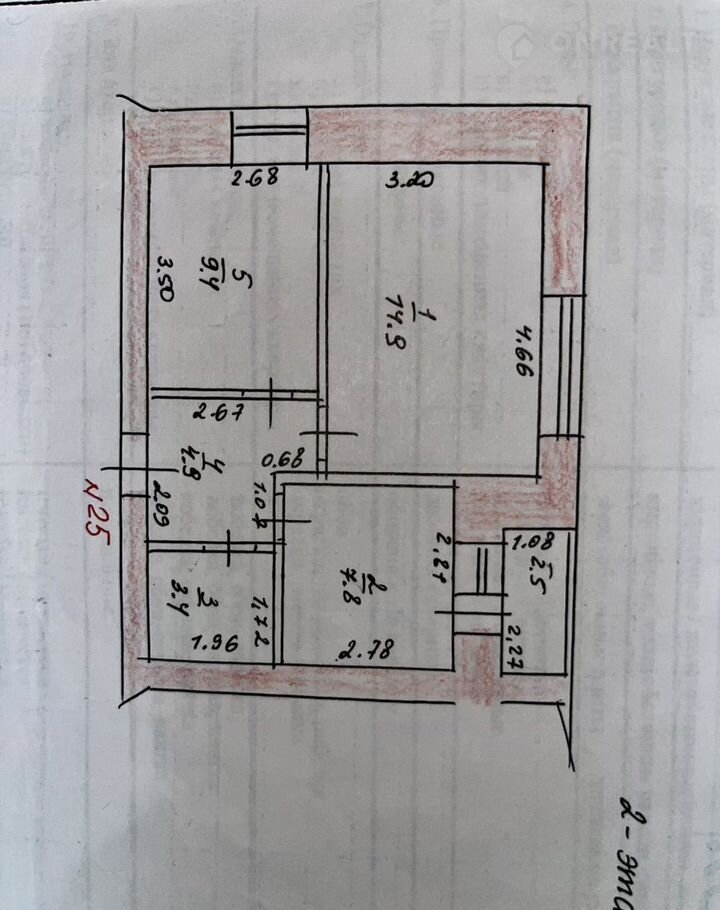 ONREALT
НЕДВИЖИМОСТЬ
2.68
3.20
5
9.4
3.50
1
14.9
4.66
2.67
4
4.9
0.68
2.09
1.07
№25
2
7.8
2,81
1.08
2.5
3
3.4
1,72
1.96
2.78
2,27
2-эта